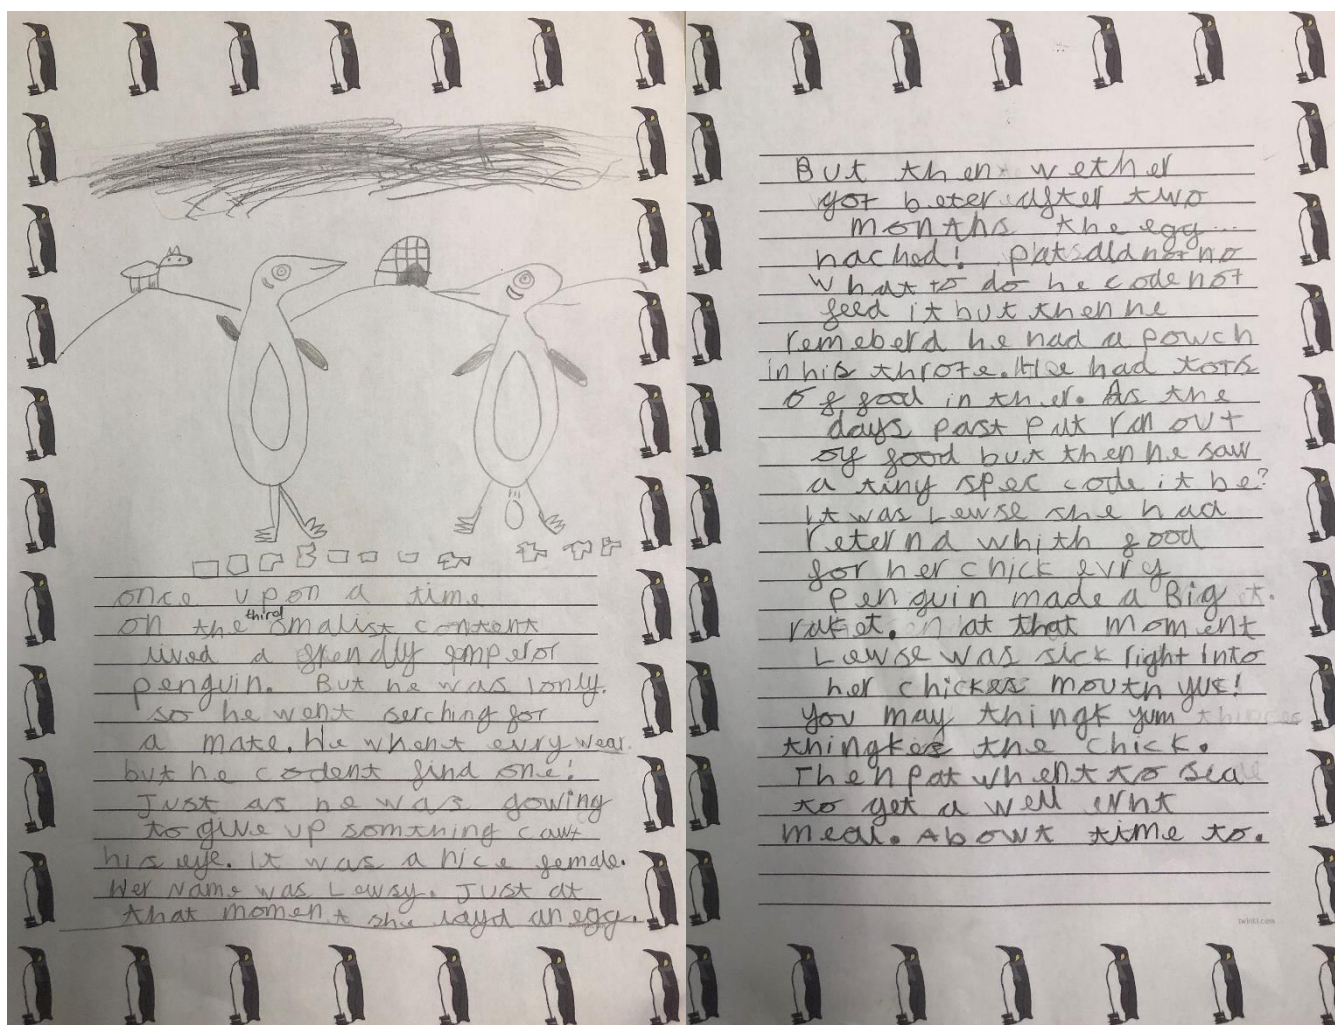 once upon a time
third
on the smalist content
lived a frendly emperor
penguin. But he was lonly.
so he went serching for
a mate. He whent evry wear.
but he codent find one!
Just as he was gowing
to give up somthing cawt
his eye. It was a nice female.
Her Name was Lewsy. Just at
that moment she layd an egg.
But then wether
got beter after two
months the egg...
hached! Pat did not no
what to do he code not
feed it but then he
remeberd he had a powch
in his throte. He had tots
of food in ther. As the
days past Pat ran out
of food but then he saw
a tiny spec code it be?
It was Lewse she had
reternd whith food
for her chick evry
penguin made a Big
raket. at that moment
Lewse was sick right into
her chickes mouth yuk!
you may thingk yum
thingkes the chick.
Then Pat whent to sea
to get a well ernt
meal. Abowt time to.
twinkl.com